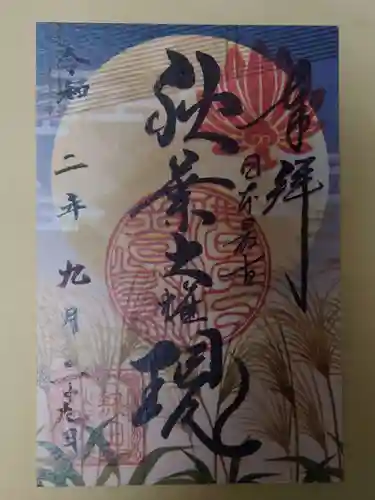 奉拝
日本最古
秋葉大権現
令和二年九月二十九日